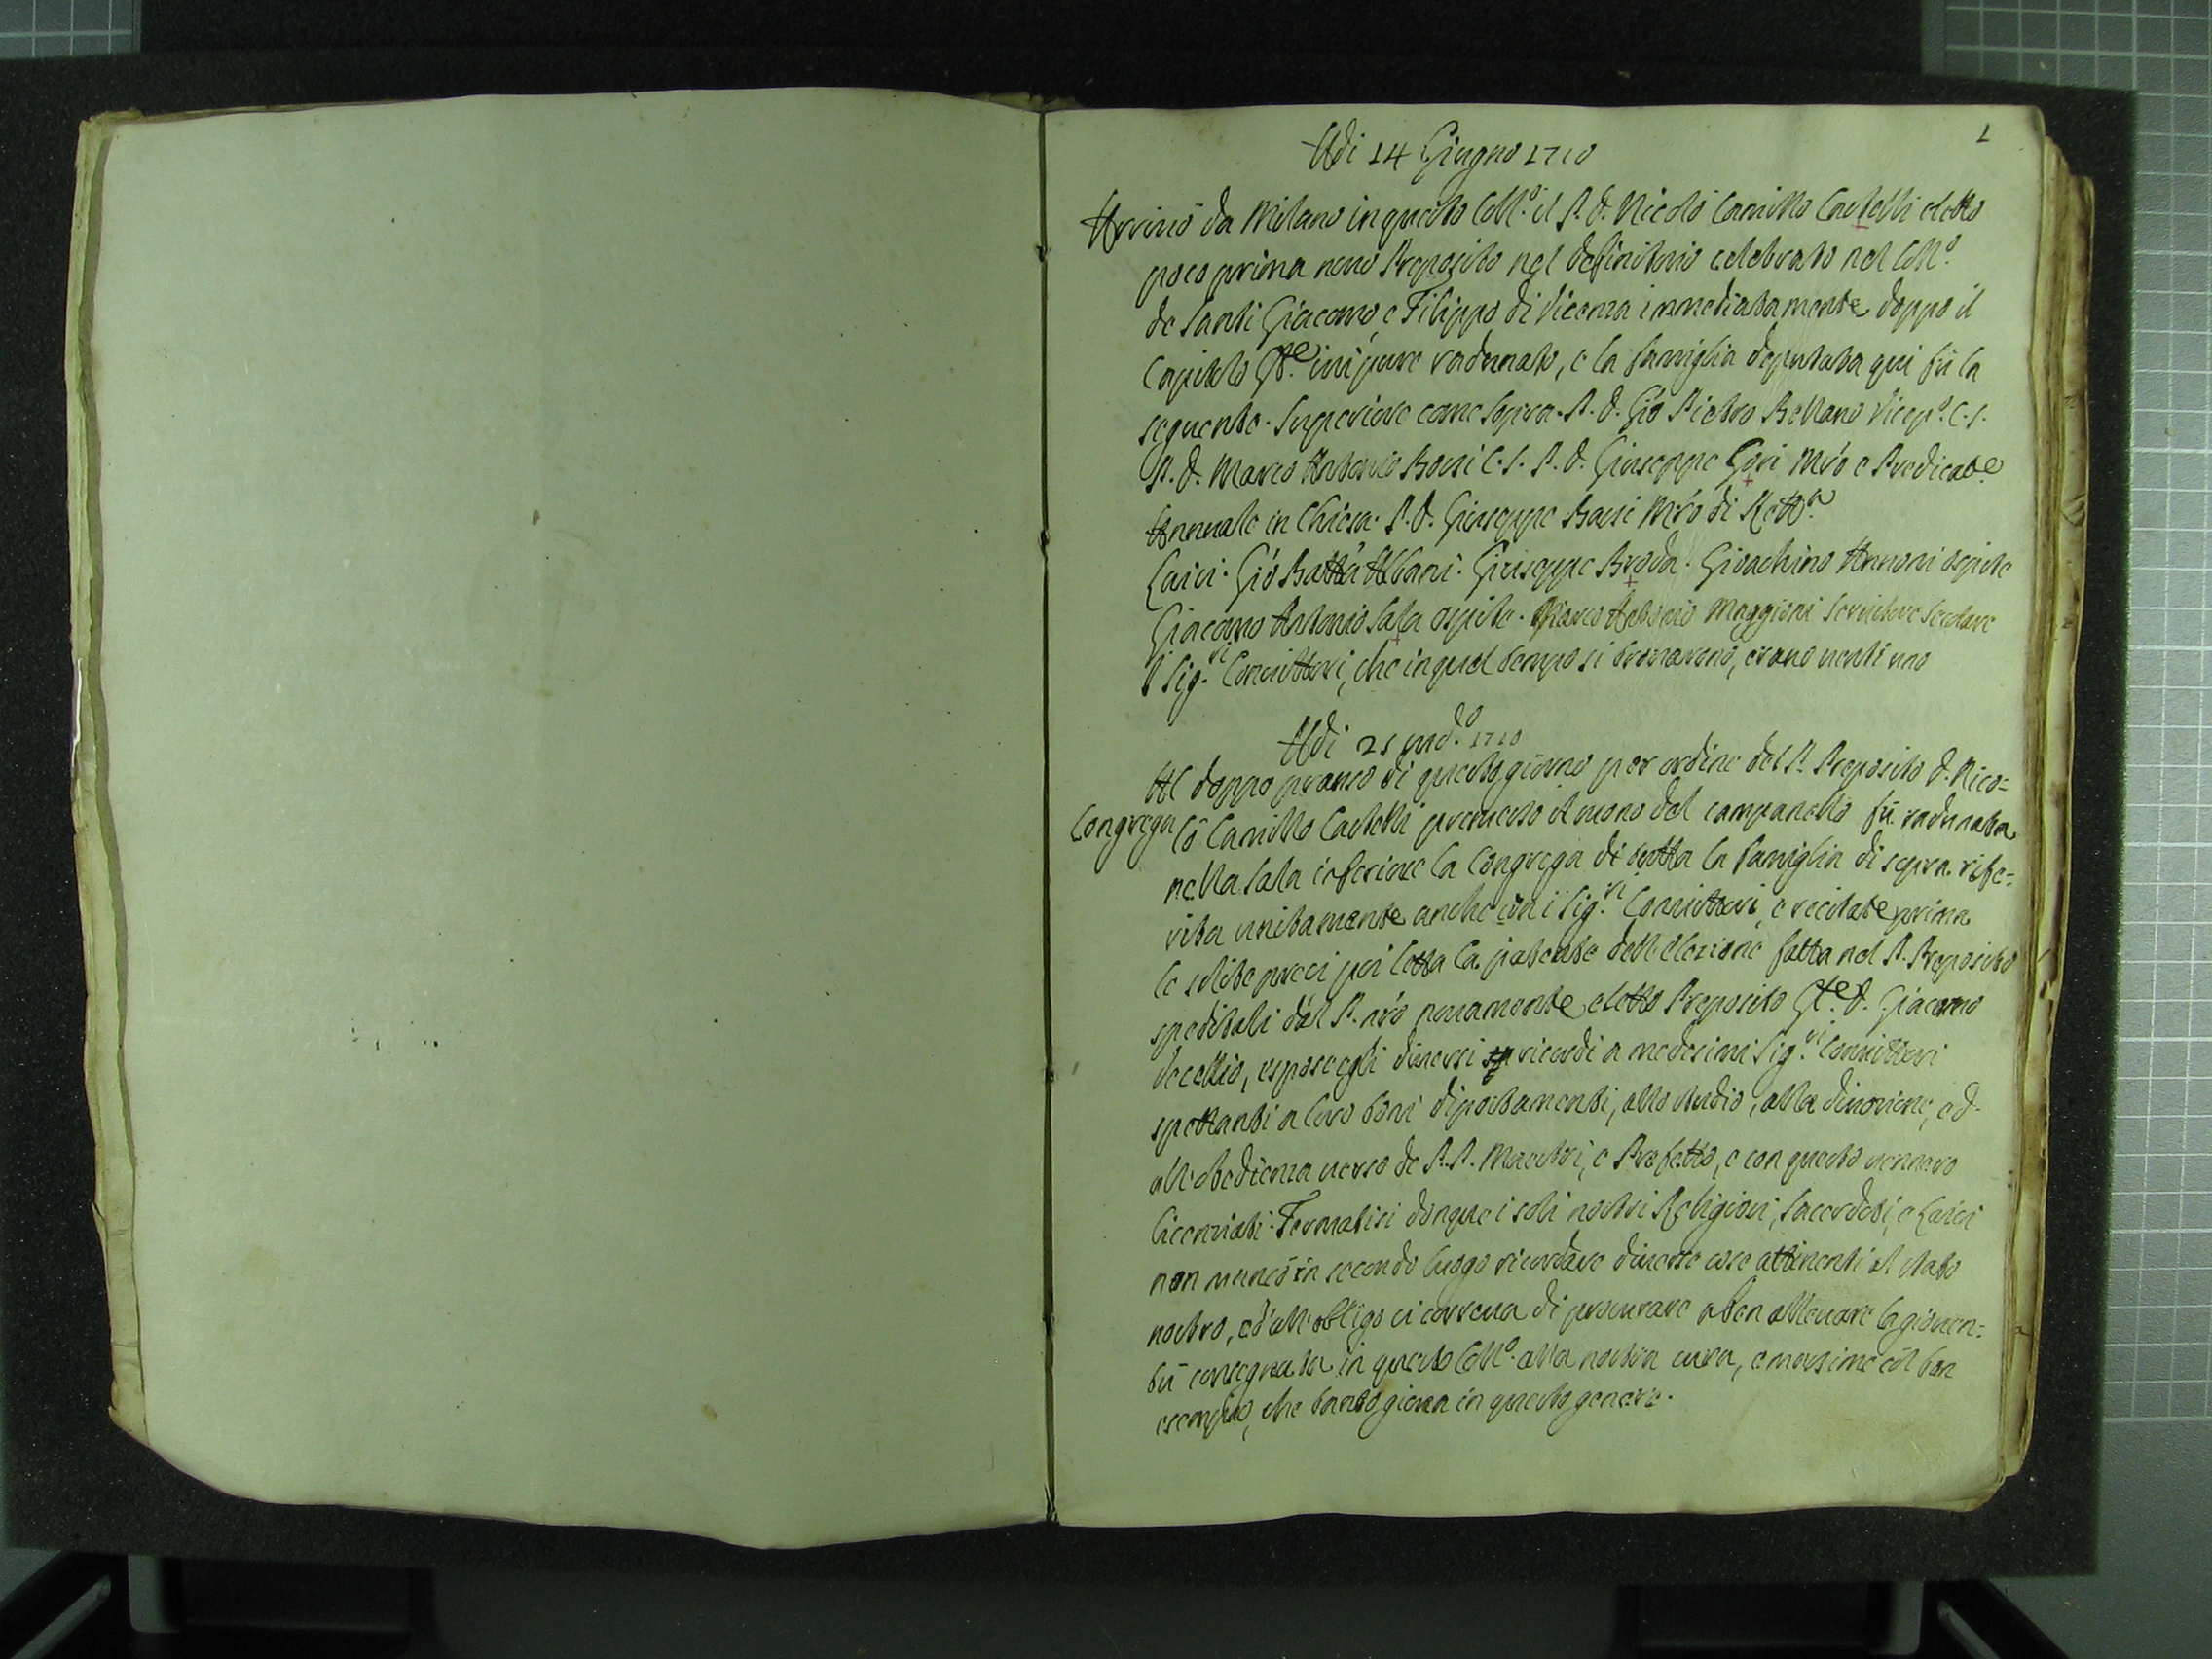 1
Adi 14 Giugno 1710
Arrivò da Milano in questo Coll.º il P. D. Nicolò Camillo Castelli eletto
poco prima novo Preposito nel definitorio celebrato nel Coll.º
de Santi Giacomo, e Filippo di Vicenza immediatamente doppo il
Capitolo G͞le. ivi pure radunato, e la famiglia deputata qui fù la
seguente. Superiore come sopra. P. D. Gio Pietro Bellano Vicep.º C. S.
P. D. Marco Antonio Rossi C. S. P. D. Giuseppe Gori Mr̃o e Predicat.e
Annuale in Chiesa. P. D. Giuseppe Bassi Mr̃o di Rett.a
Laici. Giõ Batta Albani. Giuseppe Broda. Gioachino Annoni ospite
Giacomo Antonio Sala ospite. Marco Antonio Maggioni Servitore Secolare
I Sig.ri Convittori, che in quel tempo si trovarono, erano venti uno
Adi 21 md.º 1710
Al doppo pranso di questo giorno per ordine del P. Preposito D. Nico=
Congrega
lò Camillo Castelli premesso il suono del campanello fù radunata
nella sala inferiore la Congrega di tutta la famiglia di sopra rife=
rita unitamente anche con i Sig.ri Convittori, e recitate prima
le solite preci poi letta la patente dell'elezione fatta nel P. Preposito
speditali dal P. nr̃o novamente eletto Preposito G͞le. D. Giacomo
Vecellio, espose egli diversi ricordi a medesimi Sig.ri Convittori
spettanti a loro boni diportamenti, allo studio, alla divozione, ed
all'obedienza verso de P.P. Maestri, e Prefetto, e con questo vennero
licenziati. Fermatisi donque i soli nostri Religiosi, Sacerdoti, e Laici
non mancò in secondo luogo ricordare diverse cose attinenti al stato
nostro, ed all'obligo ci correva di procurare a ben allevare la gioven=
tù consegnata in questo Coll.º alla nostra cura, e massime col bon
esempio, che tanto giova in questo genere.